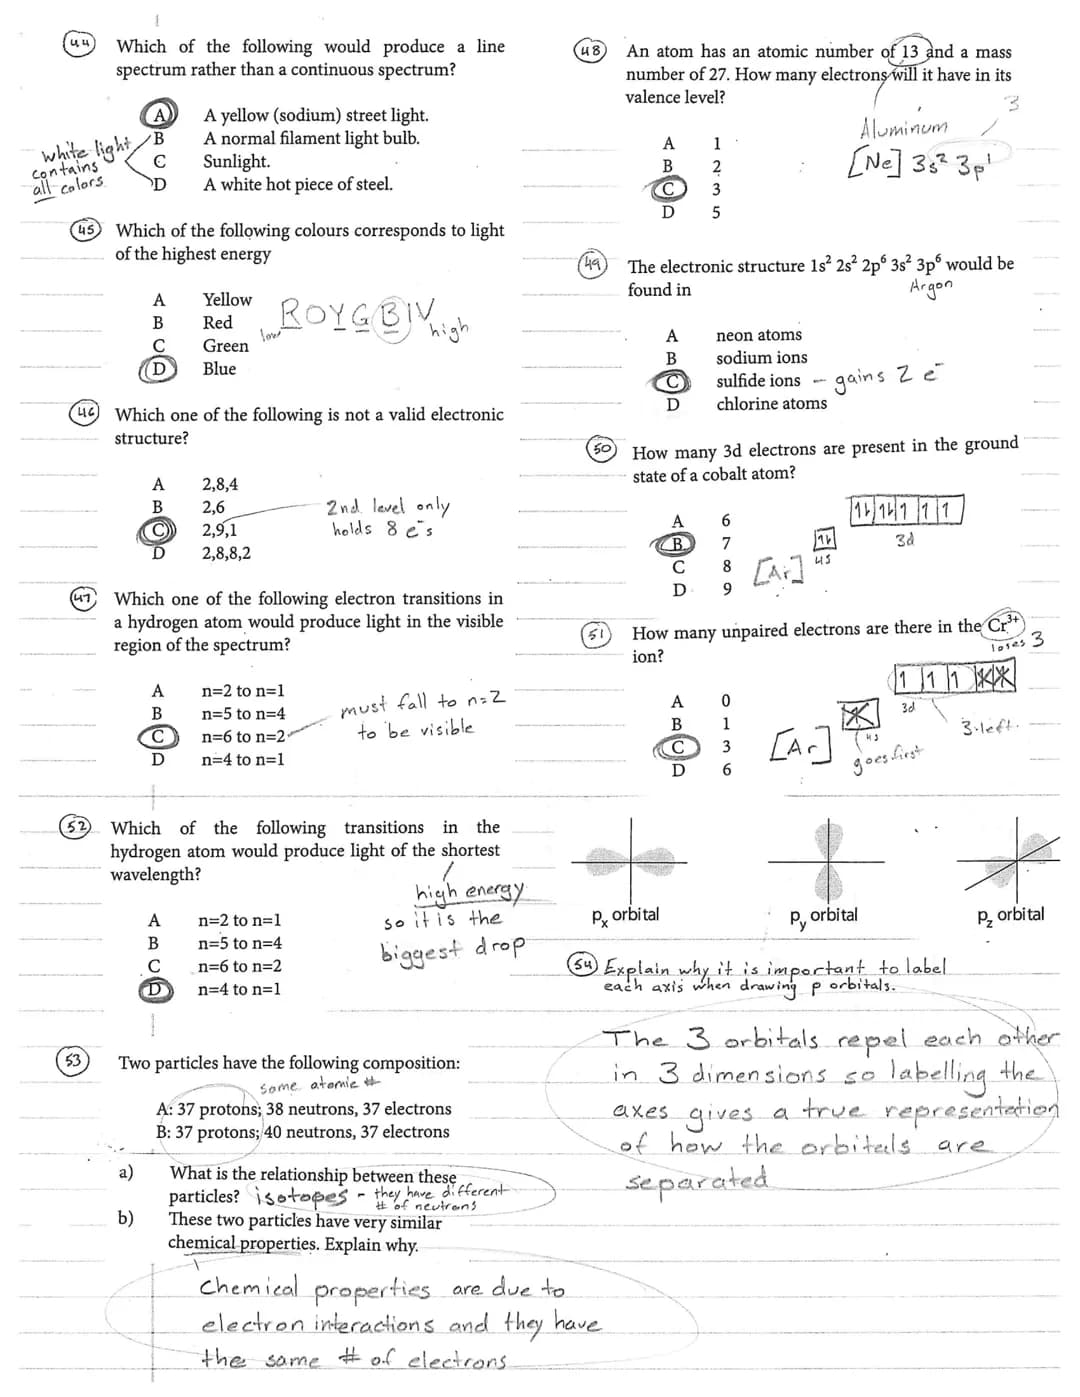 44 Which of the following would produce a line
spectrum rather than a continuous spectrum?
A A yellow (sodium) street light.
B A normal filament light bulb.
C Sunlight.
D A white hot piece of steel.
white light
contains
all colors
45 Which of the following colours corresponds to light
of the highest energy
A Yellow
B Red
C Green
D Blue
low ROYGBIV high
46 Which one of the following is not a valid electronic
structure?
A 2,8,4
B 2,6
C 2,9,1
D 2,8,8,2
2nd level only
holds 8 e⁻s
47 Which one of the following electron transitions in
a hydrogen atom would produce light in the visible
region of the spectrum?
A n=2 to n=1
B n=5 to n=4
C n=6 to n=2
D n=4 to n=1
must fall to n=2
to be visible
48 An atom has an atomic number of 13 and a mass
number of 27. How many electrons will it have in its
valence level?
3
Aluminum
[Ne] 3s² 3p¹
A 1
B 2
C 3
D 5
49 The electronic structure 1s² 2s² 2p⁶ 3s² 3p⁶ would be
found in
Argon
A neon atoms
B sodium ions
C sulfide ions - gains 2 e⁻
D chlorine atoms
50 How many 3d electrons are present in the ground
state of a cobalt atom?
A 6
B 7
C 8
D 9
[Ar] 4s 3d
51 How many unpaired electrons are there in the Cr³⁺
ion?
loses 3
A 0
B 1
C 3
D 6
[Ar] 4s 3d
goes first
3 left.
52 Which of the following transitions in the
hydrogen atom would produce light of the shortest
wavelength?
high energy
so it is the
biggest drop
A n=2 to n=1
B n=5 to n=4
C n=6 to n=2
D n=4 to n=1
53 Two particles have the following composition:
same atomic #
A: 37 protons; 38 neutrons, 37 electrons
B: 37 protons; 40 neutrons, 37 electrons
a) What is the relationship between these
particles? isotopes - they have different
# of neutrons
b) These two particles have very similar
chemical properties. Explain why.
Chemical properties are due to
electron interactions and they have
the same # of electrons
pₓ orbital
p_y orbital
p_z orbital
54 Explain why it is important to label
each axis when drawing p orbitals.
The 3 orbitals repel each other
in 3 dimensions so labelling the
axes gives a true representation
of how the orbitals are
separated